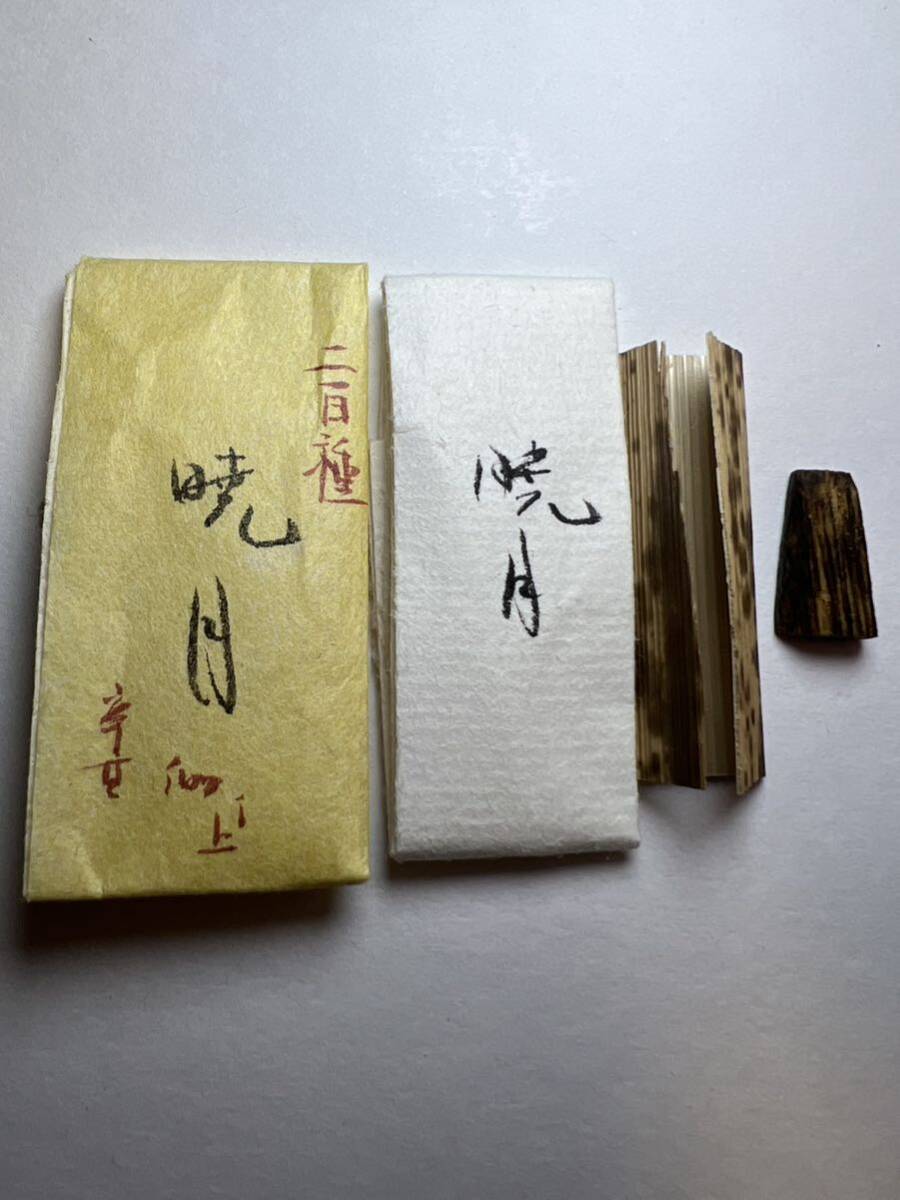 二百種
暁月
伽
上
辛甘
暁月